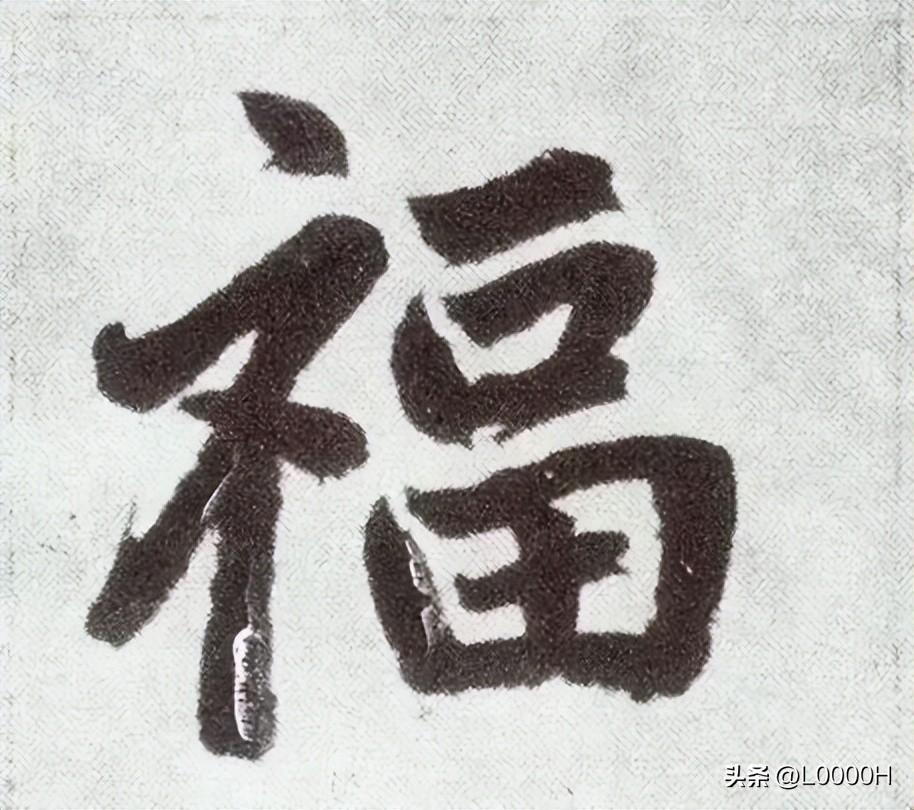 福
头条 @L0000H